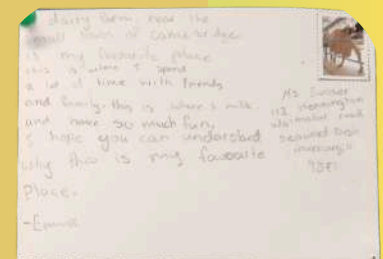 dairy farm near the
small town of cambridge
is my favourite place
this is where I spend
a lot of time with friends
and family. this is where I milk
and have so much fun,
I hope you can understand
why this is my favourite
place.
Ms
112 Kennington
road
9871